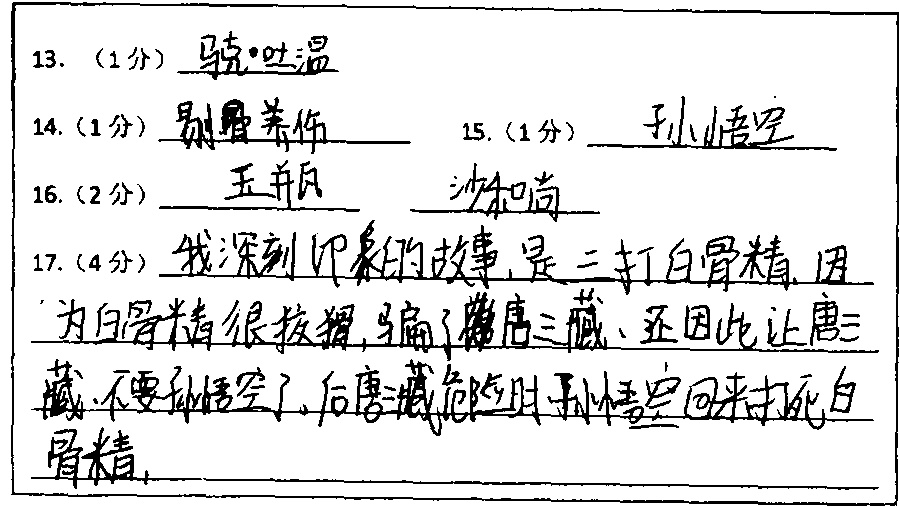 13. （1 分） 骁•吐温
14.（1 分） 剔骨养伤 15.（1 分） 孙悟空
16.（2 分） 玉并瓦 沙和尚
17.（4 分） 我深刻印象的故事,是三打白骨精,因
为白骨精很狡猾,骗了唐三藏、还因此让唐三
藏、不要孙悟空了、后唐三藏危险时孙悟空回来打死白
骨精,